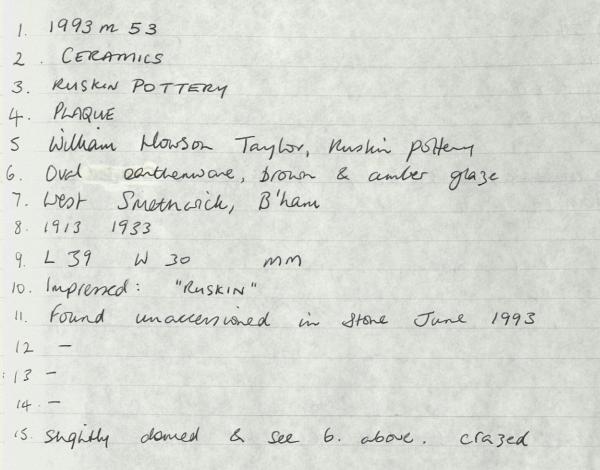 1. 1993 M 53
2. CERAMICS
3. RUSKIN POTTERY
4. PLAQUE
5 William Howson Taylor, Ruskin pottery
6. Oval earthenware, brown & amber glaze
7. West Smethwick, B'ham
8. 1913 1933
9. L 39 W 30 MM
10. Impressed: "RUSKIN"
11. Found unaccessioned in store June 1993
12 -
13 -
14. -
15. slightly domed & see 6. above. crazed